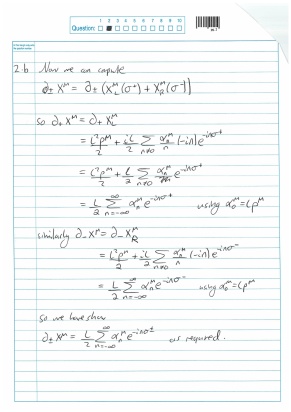 1 2 3 4 5 6 7 8 9 10
Question:
2.b Now we can compute
∂± X^μ = ∂± (X_L^μ(σ⁺) + X_R^μ(σ⁻))
so ∂₊ X^μ = ∂₊ X_L^μ
= l²p^μ/2 + il/2 Σ_{n≠0} α_n^μ/n (-in) e^{-inσ⁺}
= l²p^μ/2 + l/2 Σ_{n≠0} α_n^μ e^{-inσ⁺}
= l/2 Σ_{n=-∞}^{∞} α_n^μ e^{-inσ⁺} using α₀^μ = lp^μ
similarly ∂₋ X^μ = ∂₋ X_R^μ
= l²p^μ/2 + il/2 Σ_{n≠0} α_n^μ/n (-in) e^{-inσ⁻}
= l/2 Σ_{n=-∞}^{∞} α_n^μ e^{-inσ⁻} using α₀^μ = lp^μ
So we have shown
∂± X^μ = l/2 Σ_{n=-∞}^{∞} α_n^μ e^{-inσ±} as required.